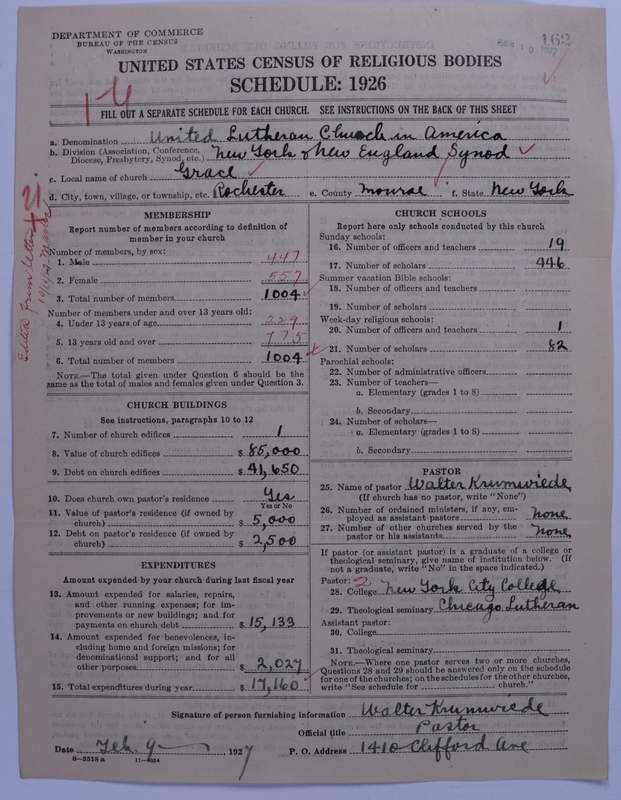 DEPARTMENT OF COMMERCE
BUREAU OF THE CENSUS
WASHINGTON
162
UNITED STATES CENSUS OF RELIGIOUS BODIES
SCHEDULE: 1926
FILL OUT A SEPARATE SCHEDULE FOR EACH CHURCH. SEE INSTRUCTIONS ON THE BACK OF THIS SHEET
a. Denomination United Lutheran Church in America
b. Division (Association, Conference, Diocese, Presbytery, Synod, etc.) New York & New England Synod
c. Local name of church Grace
d. City, town, village, or township, etc. Rochester e. County Monroe f. State New York
MEMBERSHIP
Report number of members according to definition of
member in your church
Number of members, by sex:
1. Male 447
2. Female 557
3. Total number of members 1004
Number of members under and over 13 years old:
4. Under 13 years of age 229
5. 13 years old and over 775
6. Total number of members 1004
NOTE.—The total given under Question 6 should be the
same as the total of males and females given under Question 3.
CHURCH BUILDINGS
See instructions, paragraphs 10 to 12
7. Number of church edifices 1
8. Value of church edifices $ 85,000
9. Debt on church edifices $ 41,650
10. Does church own pastor's residence Yes
Yes or No
11. Value of pastor's residence (if owned by
church) $ 5,000
12. Debt on pastor's residence (if owned by
church) $ 2,500
EXPENDITURES
Amount expended by your church during last fiscal year
13. Amount expended for salaries, repairs,
and other running expenses; for im-
provements or new buildings; and for
payments on church debt $ 15,133
14. Amount expended for benevolences, in-
cluding home and foreign missions; for
denominational support; and for all
other purposes $ 2,027
15. Total expenditures during year $ 17,160
CHURCH SCHOOLS
Report here only schools conducted by this church
Sunday schools:
16. Number of officers and teachers 19
17. Number of scholars 446
Summer vacation Bible schools:
18. Number of officers and teachers
19. Number of scholars
Week-day religious schools:
20. Number of officers and teachers 1
21. Number of scholars 82
Parochial schools:
22. Number of administrative officers
23. Number of teachers—
a. Elementary (grades 1 to 8)
b. Secondary
24. Number of scholars—
a. Elementary (grades 1 to 8)
b. Secondary
PASTOR
25. Name of pastor Walter Krumwiede
(If church has no pastor, write "None")
26. Number of ordained ministers, if any, em-
ployed as assistant pastors none
27. Number of other churches served by the
pastor or his assistants none
If pastor (or assistant pastor) is a graduate of a college or
theological seminary, give name of institution below. (If
not a graduate, write "No" in the space indicated.)
Pastor: 2
28. College New York City College
29. Theological seminary Chicago Lutheran
Assistant pastor:
30. College
31. Theological seminary
NOTE.—Where one pastor serves two or more churches,
Questions 28 and 29 should be answered only on the schedule
for one of the churches; on the schedules for the other churches,
write "See schedule for church."
Signature of person furnishing information Walter Krumwiede
Official title Pastor
Date Feb. 9 1927 P. O. Address 1410 Clifford Ave
8—5518 a